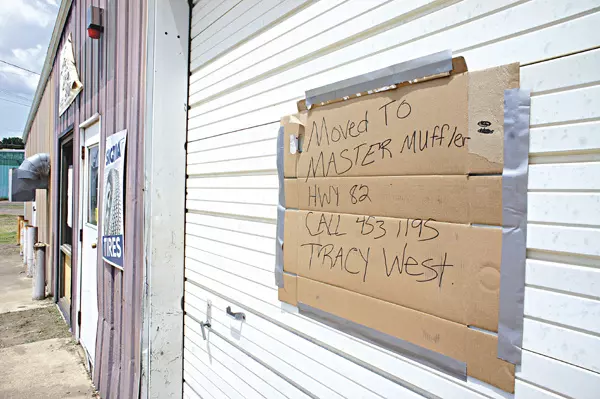 Moved To
MASTER Muffler
HWY 82
CALL 453 1195
TRACY West
TIRES